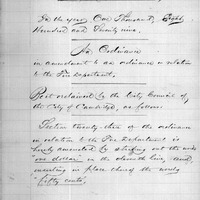 In the year One Thousand Eight
Hundred and Seventy nine.
An Ordinance
in amendment to an ordinance in relation
to the Fire Department.
Be it ordained by the City Council of
the City of Cambridge, as follows:
Section twenty-three of the ordinance
in relation to the Fire Department is
hereby amended by striking out the words
one dollar in the eleventh line, and
inserting in place thereof the words
fifty cents.